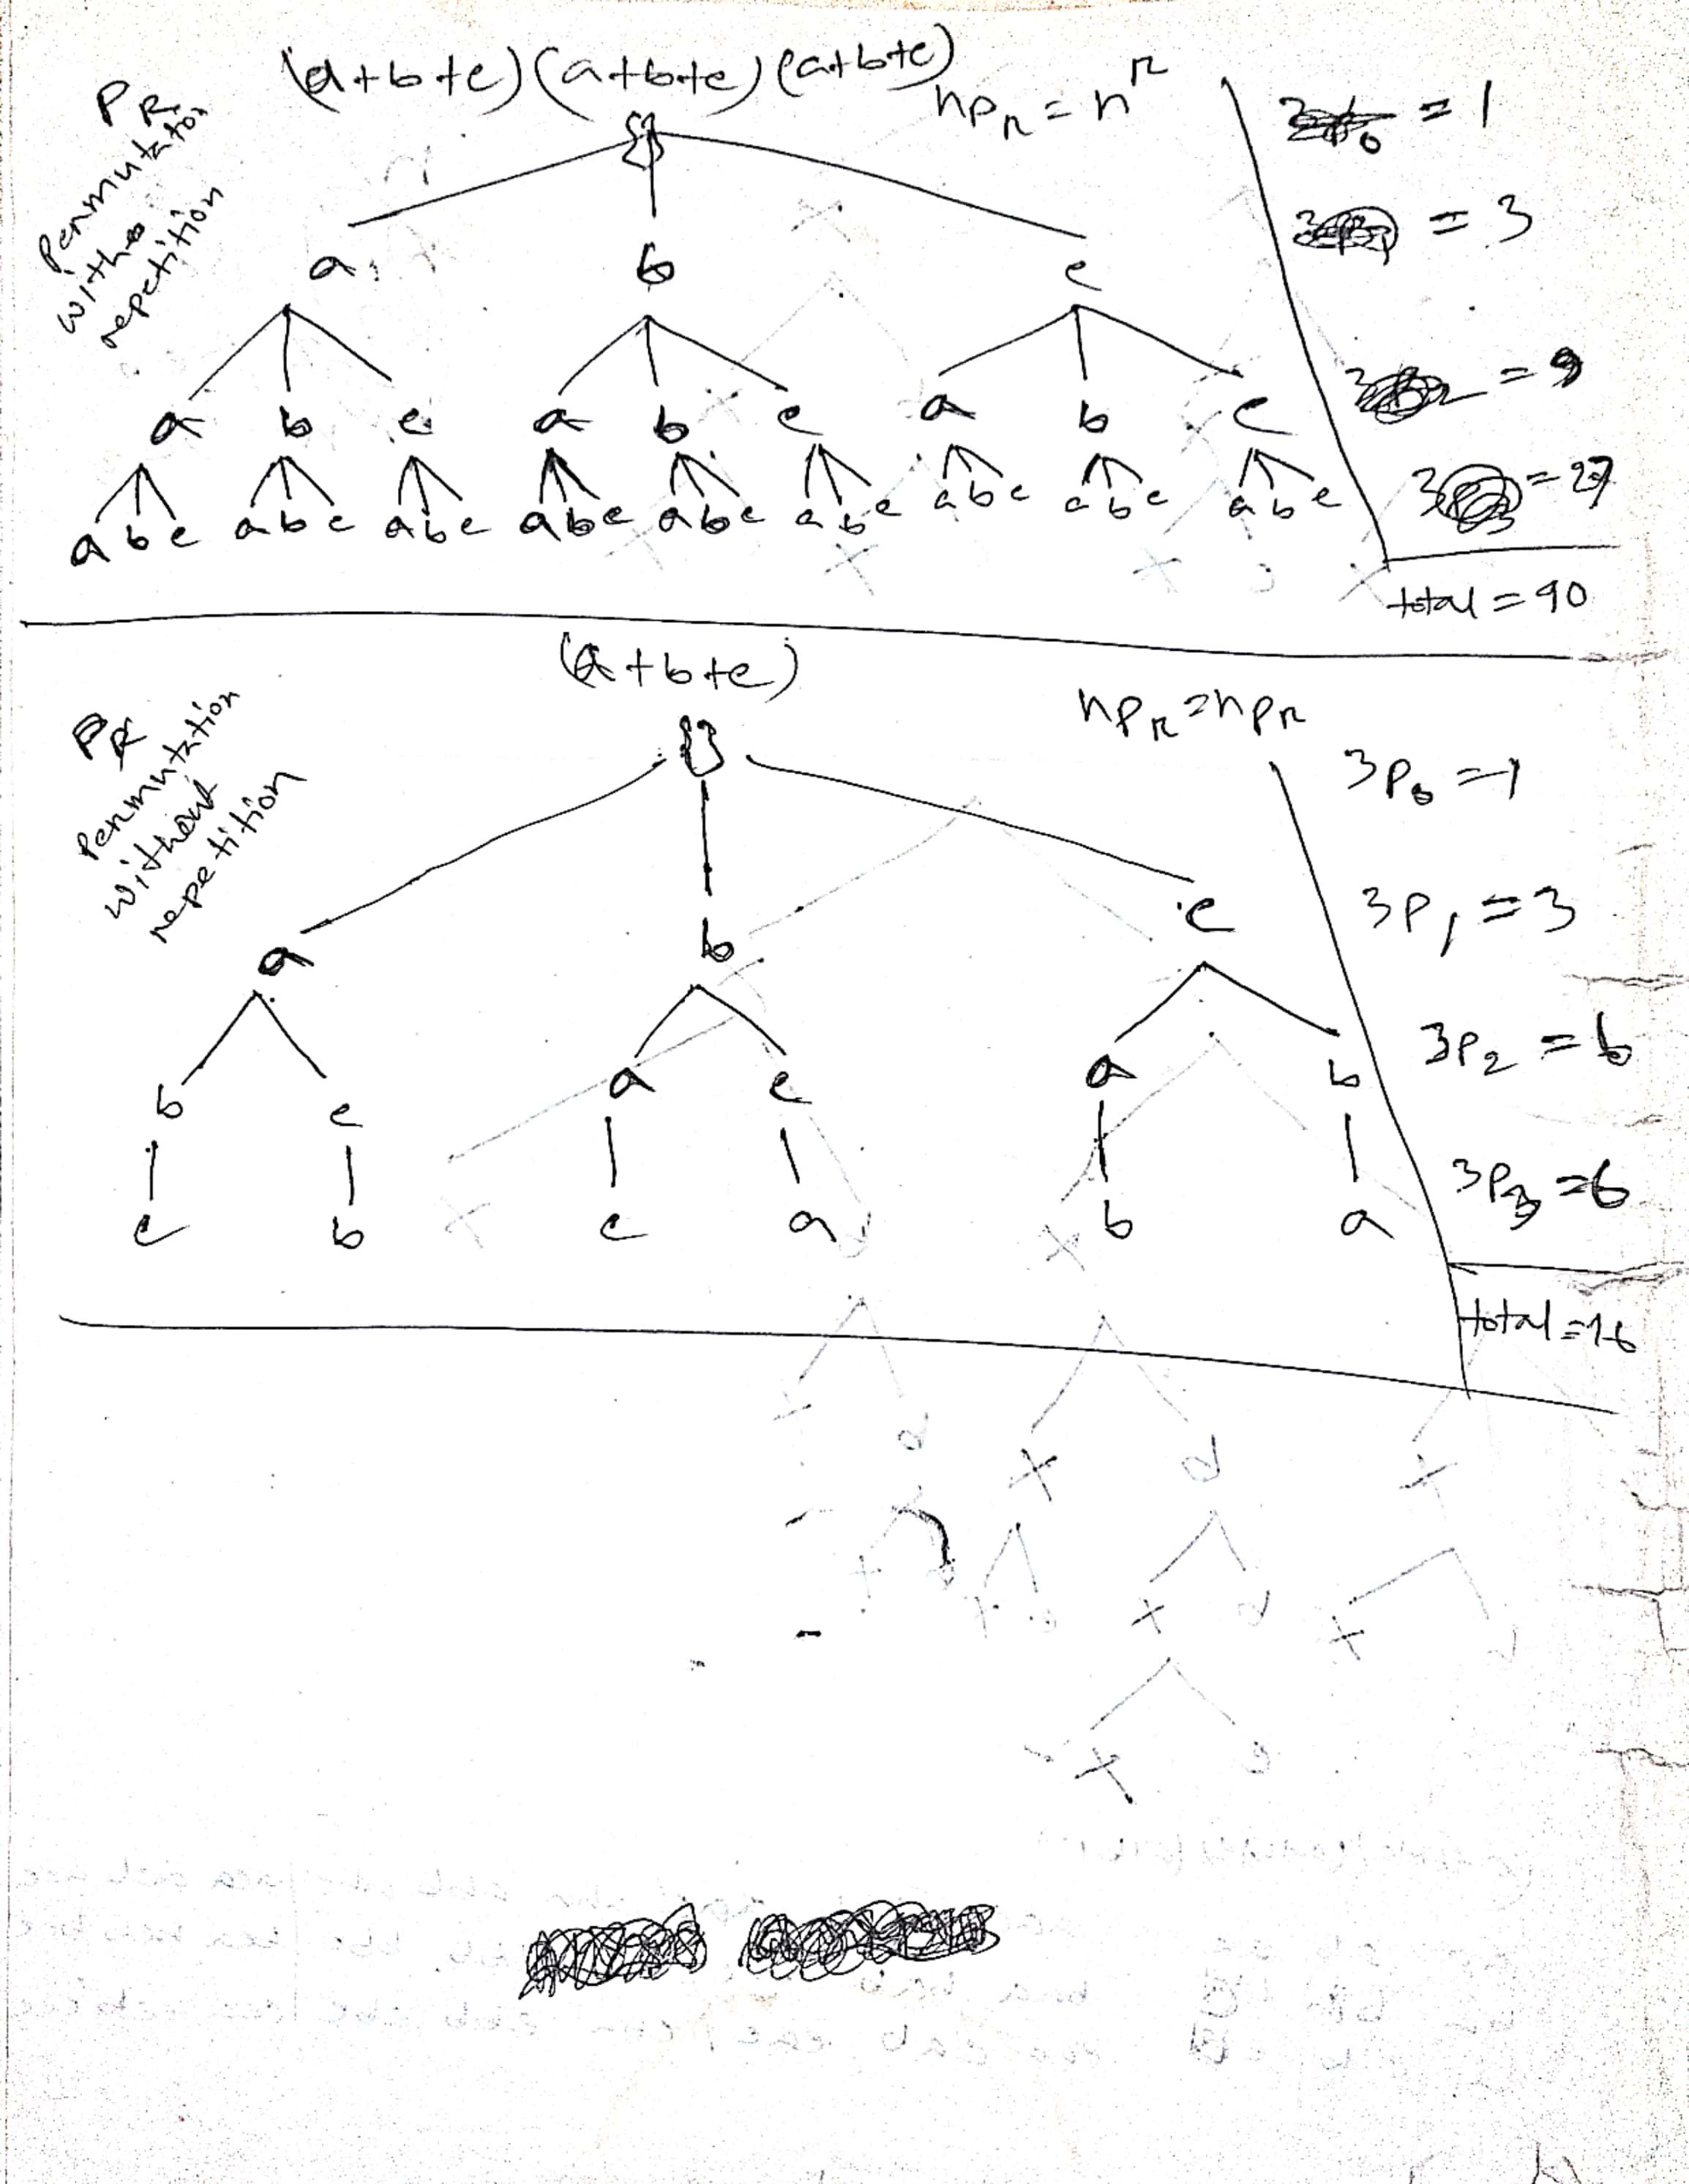 (a+b+c)(a+b+c)(a+b+c)
PR
Permutation
with
repetition
nPr = n^r
{}
a b c
a b c a b c a b c
a b c a b c a b c a b c a b c a b c a b c a b c a b c
= 1
= 3
= 9
= 27
total = 40
(a+b+c)
PR
Permutation
without
repetition
nPr = nPr
{}
a b c
b c a c a b
c b c a b a
3P0 = 1
3P1 = 3
3P2 = 6
3P3 = 6
total = 16